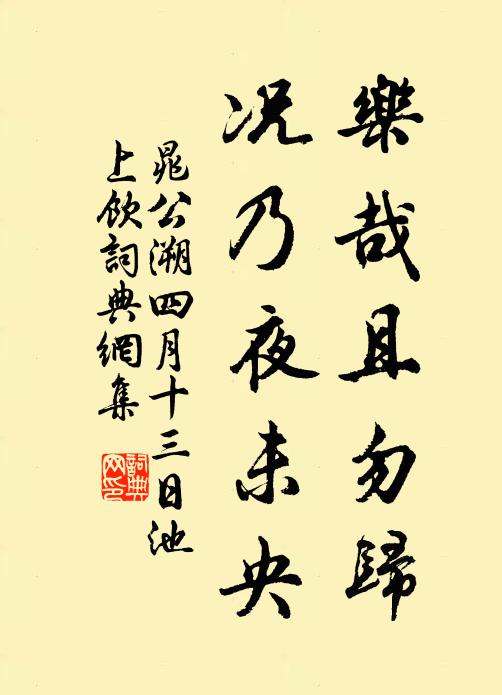 樂哉且勿歸
況乃夜未央
晁公溯四月十三日池
上飲詞典網集
詞典
网印